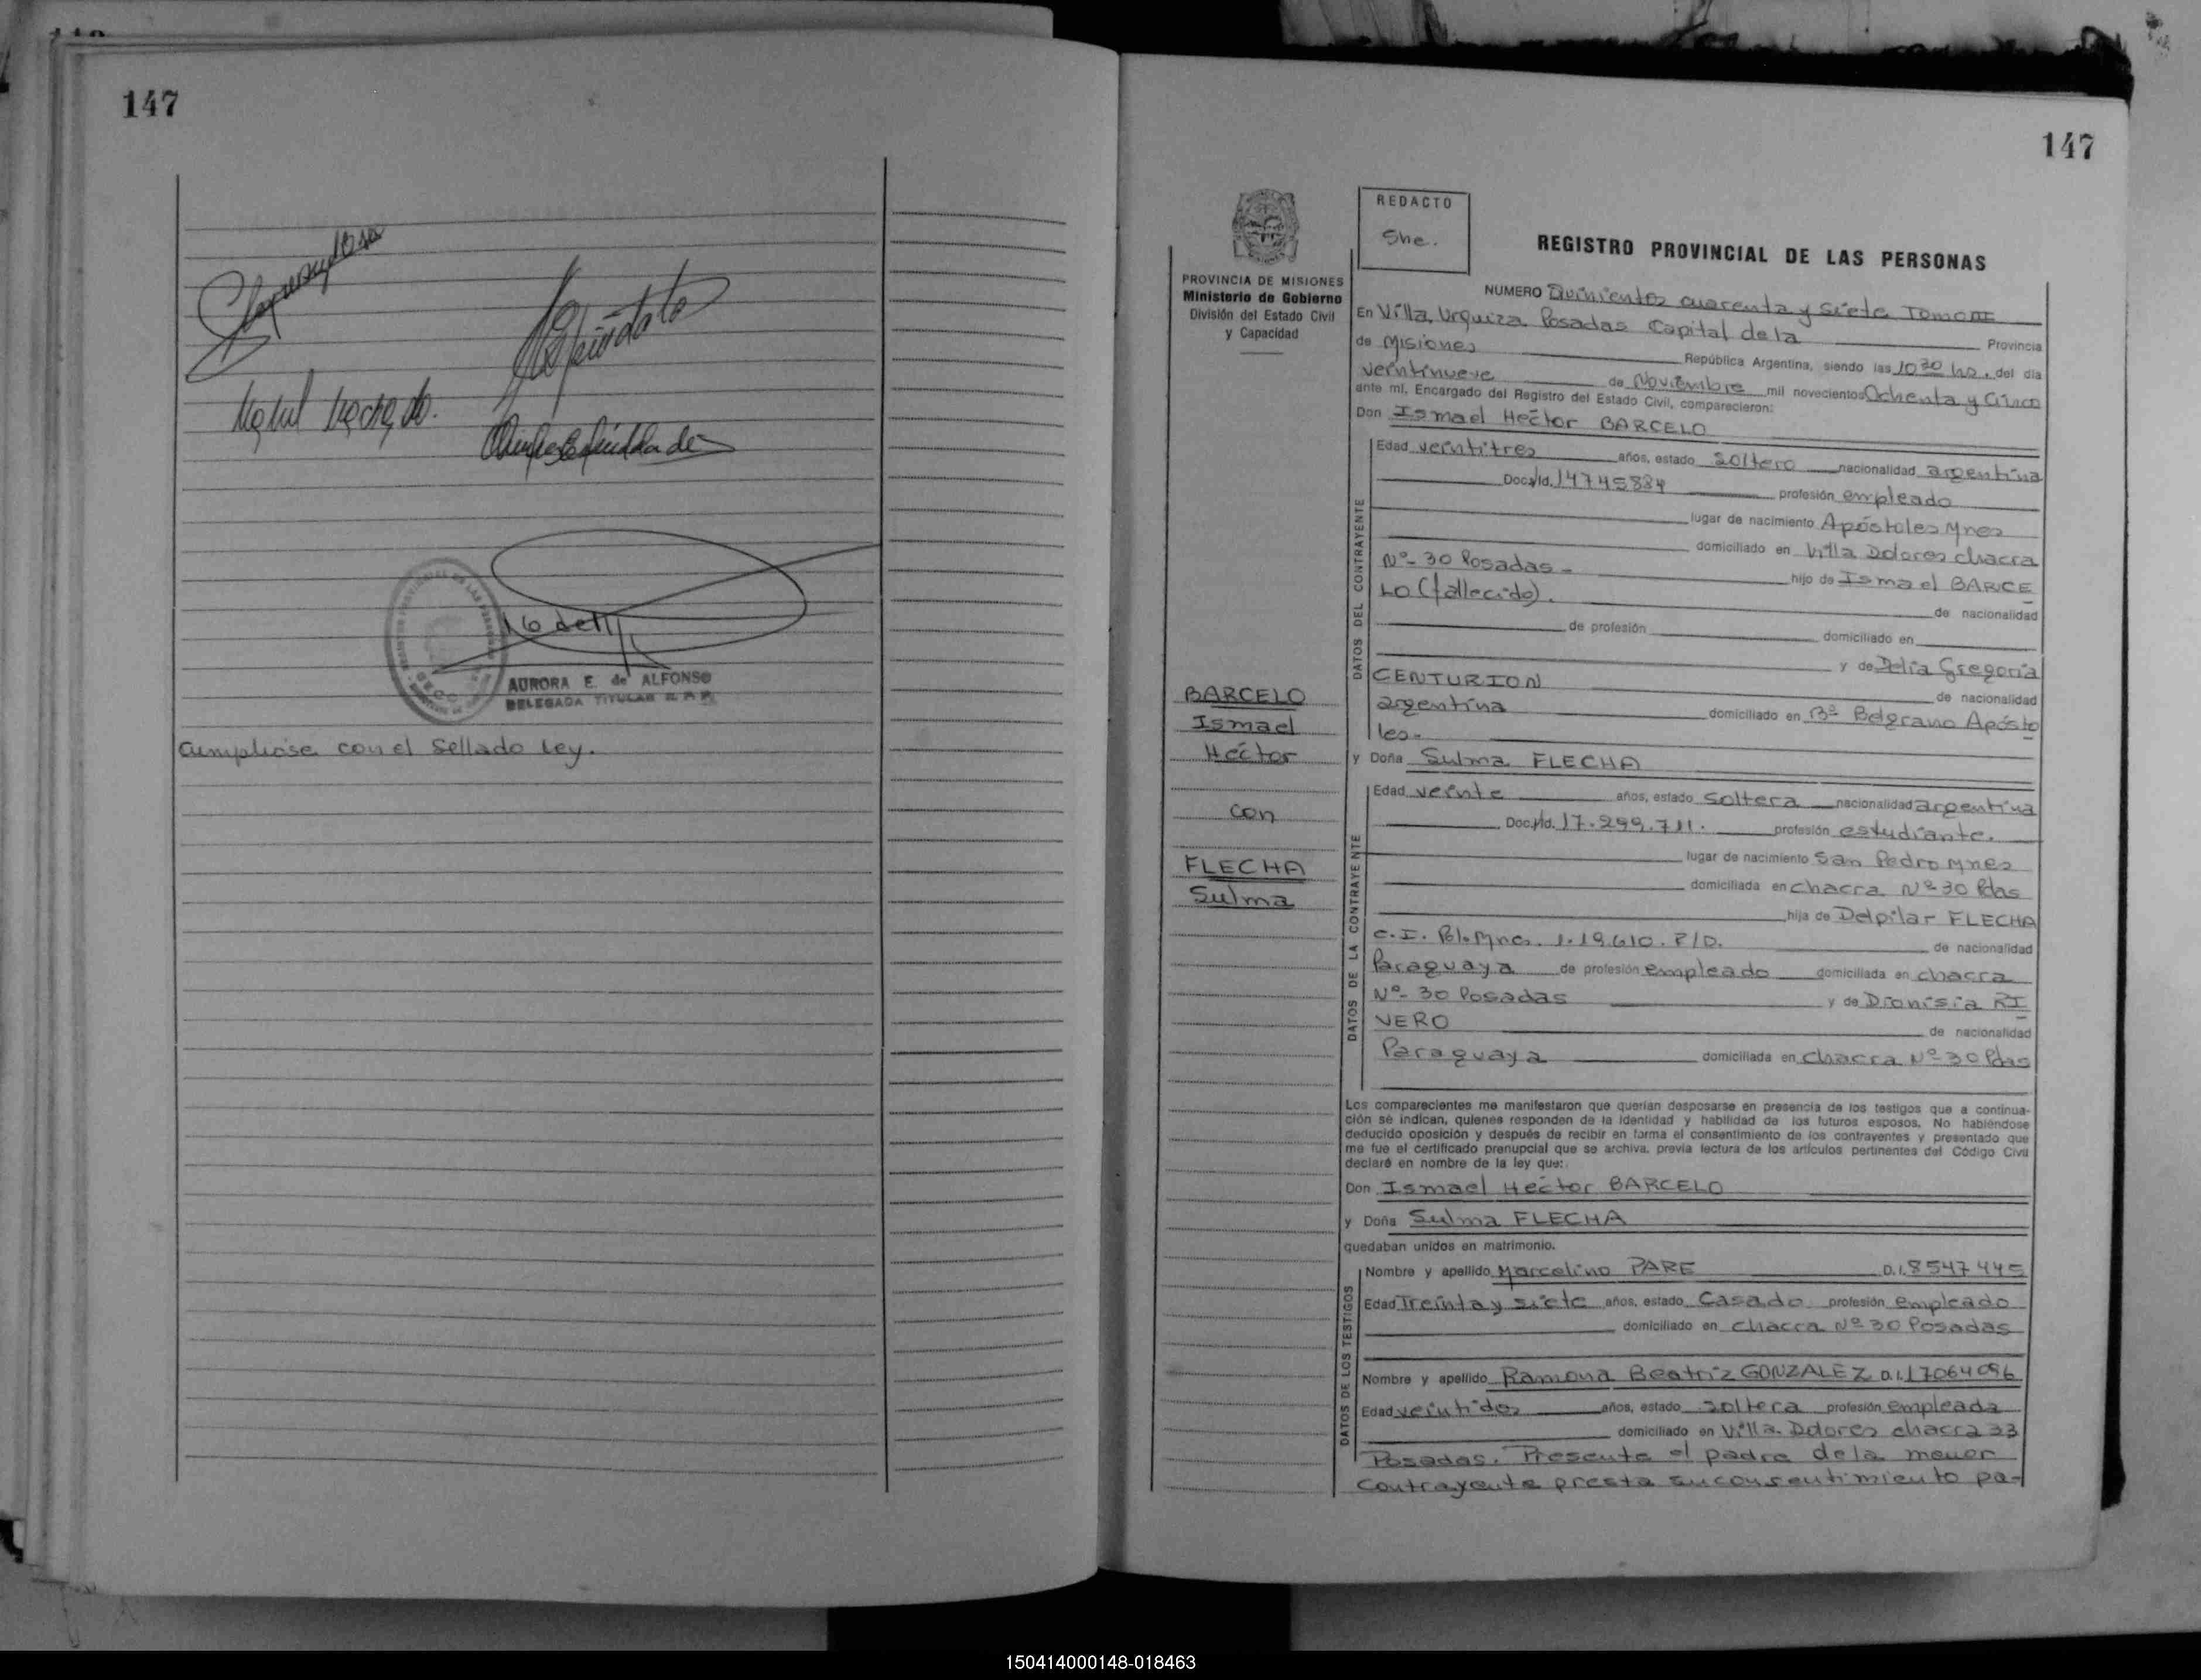 147
16 de 11
AURORA E. de ALFONSO
DELEGADA TITULAR R. P. P.
Cumpliose con el Sellado Ley.
147
REDACTO
She.
REGISTRO PROVINCIAL DE LAS PERSONAS
PROVINCIA DE MISIONES
Ministerio de Gobierno
División del Estado Civil
y Capacidad
BARCELO
Ismael
Héctor
con
FLECHA
Sulma
NUMERO Quinientos cuarenta y siete Tomo III
En Villa Urquiza Posadas Capital de la Provincia
de Misiones República Argentina, siendo las 10 30 hs. del día
veintinueve de Noviembre mil novecientos Ochenta y Cinco
ante mí, Encargado del Registro del Estado Civil, comparecieron:
Don Ismael Héctor BARCELO
DATOS DEL CONTRAYENTE
Edad veintitres años, estado soltero nacionalidad argentina
Doc. Id. 14745884 profesión empleado
lugar de nacimiento Apóstoles Mnes
domiciliado en Villa Dolores chacra
Nº 30 Posadas - hijo de Ismael BARCE
LO (fallecido). de nacionalidad
de profesión domiciliado en
y de Delia Gregoria
CENTURION de nacionalidad
argentina domiciliado en Bº Belgrano Apósto
les.
y Doña Sulma FLECHA
DATOS DE LA CONTRAYENTE
Edad veinte años, estado soltera nacionalidad argentina
Doc. Id. 17.299.711. profesión estudiante.
lugar de nacimiento San Pedro Mnes
domiciliada en chacra Nº 30 Pdas
hija de Delpilar FLECHA
C.I. Pol. Mnes. 1.19.610. P/D. de nacionalidad
Paraguaya de profesión empleado domiciliada en chacra
Nº 30 Posadas y de Dionisia RI
VERO de nacionalidad
Paraguaya domiciliada en chacra Nº 30 Pdas
Los comparecientes me manifestaron que querían desposarse en presencia de los testigos que a continua-
ción se indican, quienes responden de la identidad y habilidad de los futuros esposos. No habiéndose
deducido oposición y después de recibir en forma el consentimiento de los contrayentes y presentado que
me fue el certificado prenupcial que se archiva, previa lectura de los artículos pertinentes del Código Civil
declaré en nombre de la ley que:
Don Ismael Héctor BARCELO
y Doña Sulma FLECHA
quedaban unidos en matrimonio.
DATOS DE LOS TESTIGOS
Nombre y apellido Marcelino PARE D.I. 8547445
Edad Treinta y siete años, estado Casado profesión empleado
domiciliado en chacra Nº 30 Posadas
Nombre y apellido Ramona Beatriz GONZALEZ D.I. 17064096
Edad veintidos años, estado soltera profesión empleada
domiciliado en Villa Dolores chacra 33
Posadas. Presente el padre de la menor
contrayente presta su consentimiento pa-
150414000148-018463